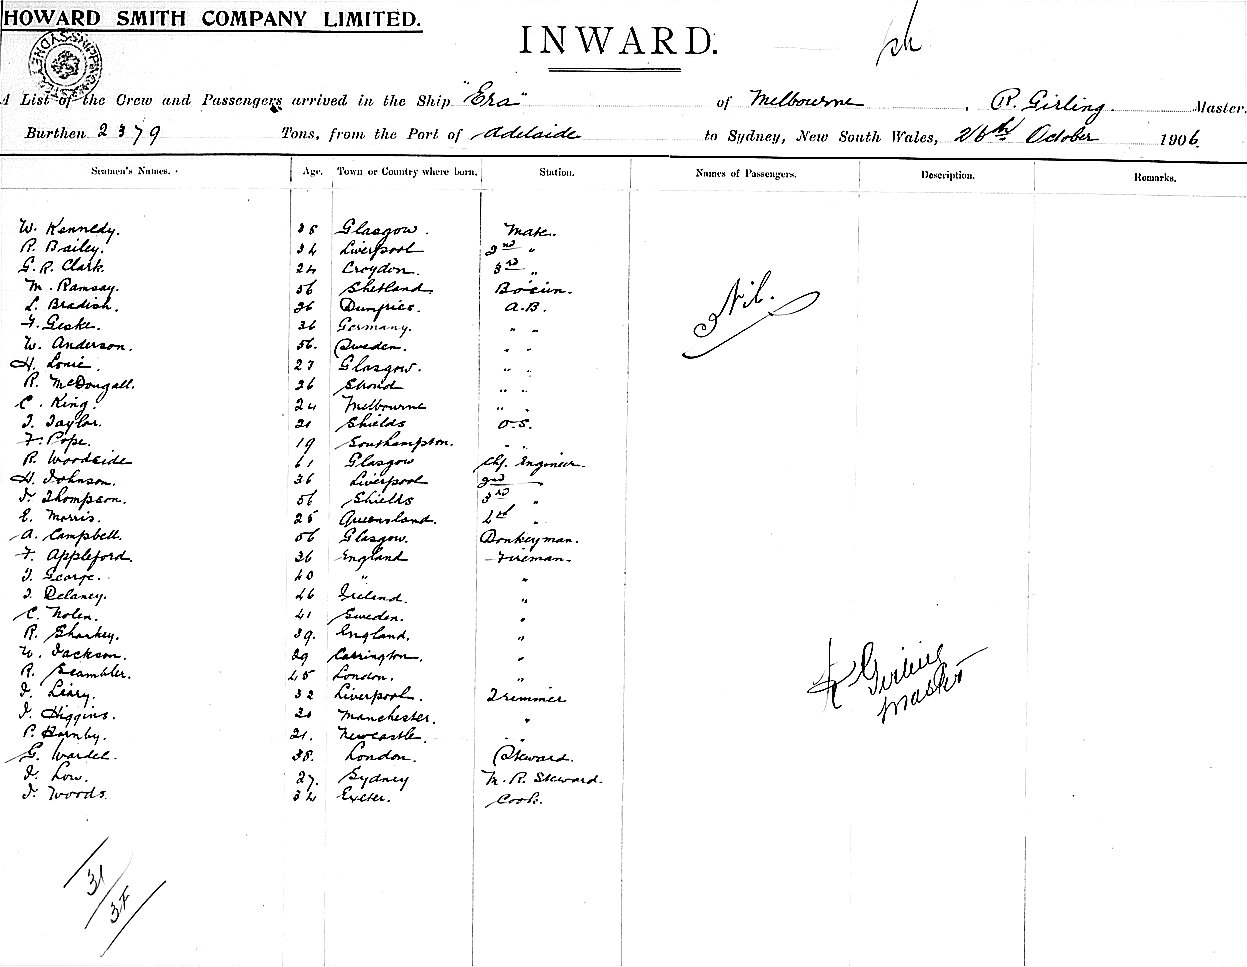 HOWARD SMITH COMPANY LIMITED.
INWARD.
A List of the Crew and Passengers arrived in the Ship "Era" of Melbourne, R. Girling Master.
Burthen 2379 Tons, from the Port of Adelaide to Sydney, New South Wales, 26th October 1906
Seamen's Names. Age. Town or Country where born. Station. Names of Passengers. Description. Remarks.
W. Kennedy. 35 Glasgow. Mate.
R. Bailey. 34 Liverpool 2nd "
G. R. Clark. 24 Croydon. 3rd "
M. Ramsay. 56 Shetland. Bo'sun.
L. Bradish. 36 Dumfries. A.B.
F. Geske. 36 Germany. " "
W. Anderson. 56. Sweden. " "
H. Lonie. 27 Glasgow. " "
R. McDougall. 26 Stroud " "
C. King. 24 Melbourne " "
J. Taylor. 21 Shields O.S.
F. Pope. 19 Southampton. " "
R. Woodside 61 Glasgow Chf. Engineer.
H. Johnson. 36 Liverpool 2nd "
J. Thompson. 56 Shields 3rd "
E. Morris. 25 Queensland. 4th "
A. Campbell. 56 Glasgow. Donkeyman.
F. Appleford. 36 England Fireman.
J. George. 40 " "
J. Delaney. 46 Ireland. "
C. Nolen. 41 Sweden. "
R. Sharkey. 39. England. "
W. Jackson. 29 Carrington. "
R. Scambler. 45 London. "
J. Liary. 32 Liverpool. Trimmer
J. Higgins. 20 Manchester. "
P. Hornby. 21. Newcastle. "
G. Wardel. 38. London. Steward.
J. Low. 27. Sydney M. R. Steward.
J. Woods. 34 Exeter. Cook.
Nil.
R Girling
Master
31